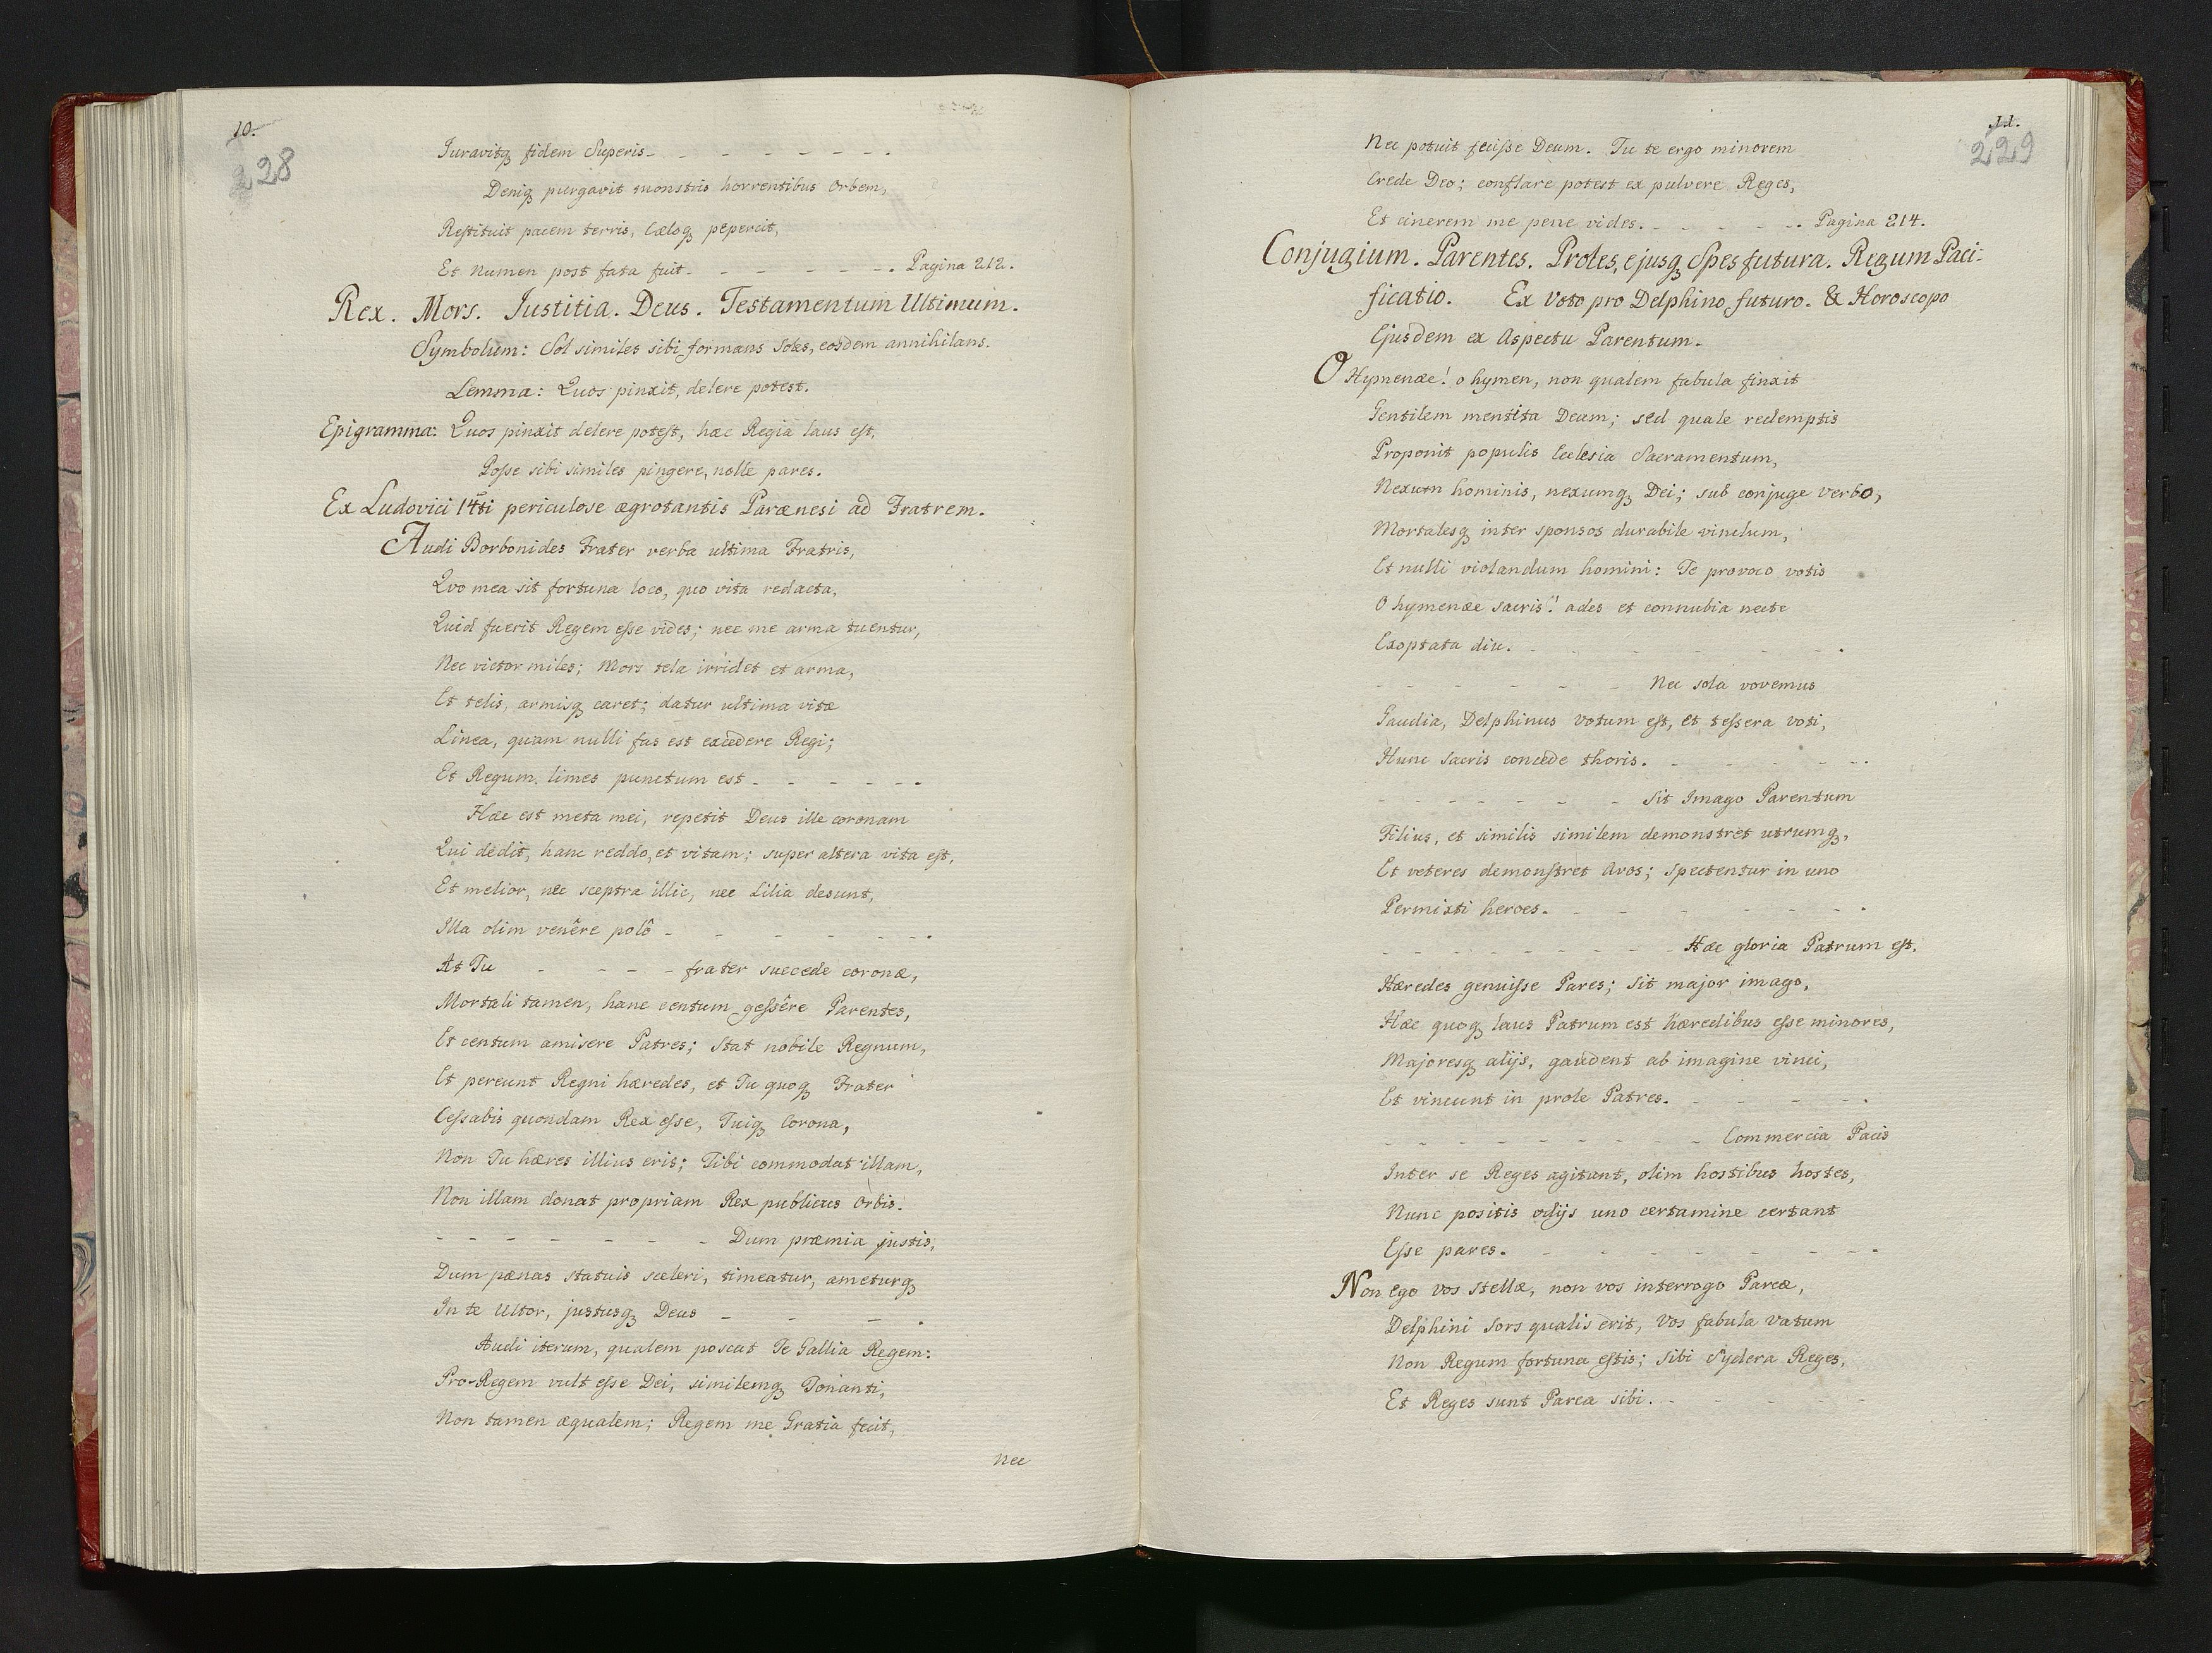 10.
228
Juravitq fidem Superis- - - - - - - - .
Deniq purgavit monstris horrentibus Orbem,
Restituit pacem terris, Cæloq pepercit,
Et Numen post fata fuit- - - - - - - . Pagina 212.
Rex. Mors. Justitia. Deus. Testamentum Ultimum.
Symbolum: Sol similes sibi formans Soles, eosdem annihilans.
Lemma: Quos pinxit, delere potest.
Epigramma: Quos pinxit delere potest, hæc Regia laus est,
Posse sibi similes pingere, nolle pares.
Ex Ludovici 14ti periculose ægrotantis Parænesi ad Fratrem.
Audi Borbonides Frater verba ultima Fratris,
Qvo mea sit fortuna loco, quo vita redacta,
Quid fuerit Regem esse vides; nec me arma tuentur,
Nec victor miles; Mors tela irridet et arma,
Et telis, armisq caret; datur ultima vitæ
Linea, quam nulli fas est excedere Regi;
Et Regum limes punctum est - - - - - - .
Hæc est meta mei, repetit Deus ille coronam
Qui dedit, hanc reddo, et vitam; super altera vita est,
Et melior, nec sceptra illic, nec Lilia desunt,
Illa olim venêre polô - - - - - - - .
At Tu - - - - frater succede coronæ,
Mortali tamen, hanc centum gessêre Parentes,
Et centum amisere Patres; Stat nobile Regnum,
Et pereunt Regni hæredes, et Tu quoq Frater
Cessabis quondam Rex esse, Tuiq Corona,
Non Tu hæres illius eris; Tibi commodat illam,
Non illam donat propriam Rex publicus Orbis.
- - - - - - - - - Dum præmia justis,
Dum pænas statuis sceleri, timeatur, ameturq
In te Ultor, justusq Deus - - - .
Audi iterum, qualem poscat Te Gallia Regem:
Pro-Regem vult esse Dei, similemq Tonanti,
Non tamen æqualem; Regem me Gratia fecit,
Nec
11.
229
Nec potuit fecisse Deum. Tu te ergo minorem
Crede Deo; conflare potest ex pulvere Reges,
Et cinerem me pene vides. - - - - - . Pagina 214.
Conjugium. Parentes. Proles, ejusq Spes futura. Regum Paci-
ficatio. Ex Voto pro Delphino futuro. & Horoscopo
Ejusdem ex Aspectu Parentum.
O Hymenæe! o hymen, non qualem fabula finxit
Gentilem mentita Deam; sed quale redemptis
Proponit populis Ecclesia Sacramentum,
Nexum hominis, nexumq Dei; sub conjuge Verbo,
Mortalesq inter sponsos durabile vinclum,
Et nulli violandum homini: Te provoco votis
O hymenæe sacris! ades et connubia necte
Exoptata diu. - - - - - - .
- - - - - - - Nec sola vovemus
Gaudia, Delphinus votum est, et tessera voti,
Hunc Sacris concede thoris. - - - - - .
- - - - - - - - Sit Imago Parentum
Filius, et similis similem demonstret utrumq,
Et veteres demonstret Avos; Spectentur in uno
Permixti heroes. - - - - - - - .
- - - - - - - - - Hæc gloria Patrum est,
Hæredes genuisse Pares; Sit major imago,
Hæc quoq laus Patrum est hæredibus esse minores,
Majoresq alijs, gaudent ab imagine vinci,
Et vincunt in prole Patres. - - - - - .
- - - - - - - - - - Commercia Pacis
Inter se Reges agitant, olim hostibus hostes,
Nunc positis odijs uno certamine certant
Esse pares. - - - - - - - - .
Non Ego vos Stellæ, non vos interrogo Parcæ,
Delphini Sors qualis erit, Vos fabula Vatum
Non Regum fortuna estis; Sibi Sydera Reges,
Et Reges sunt Parca sibi. - - - - -